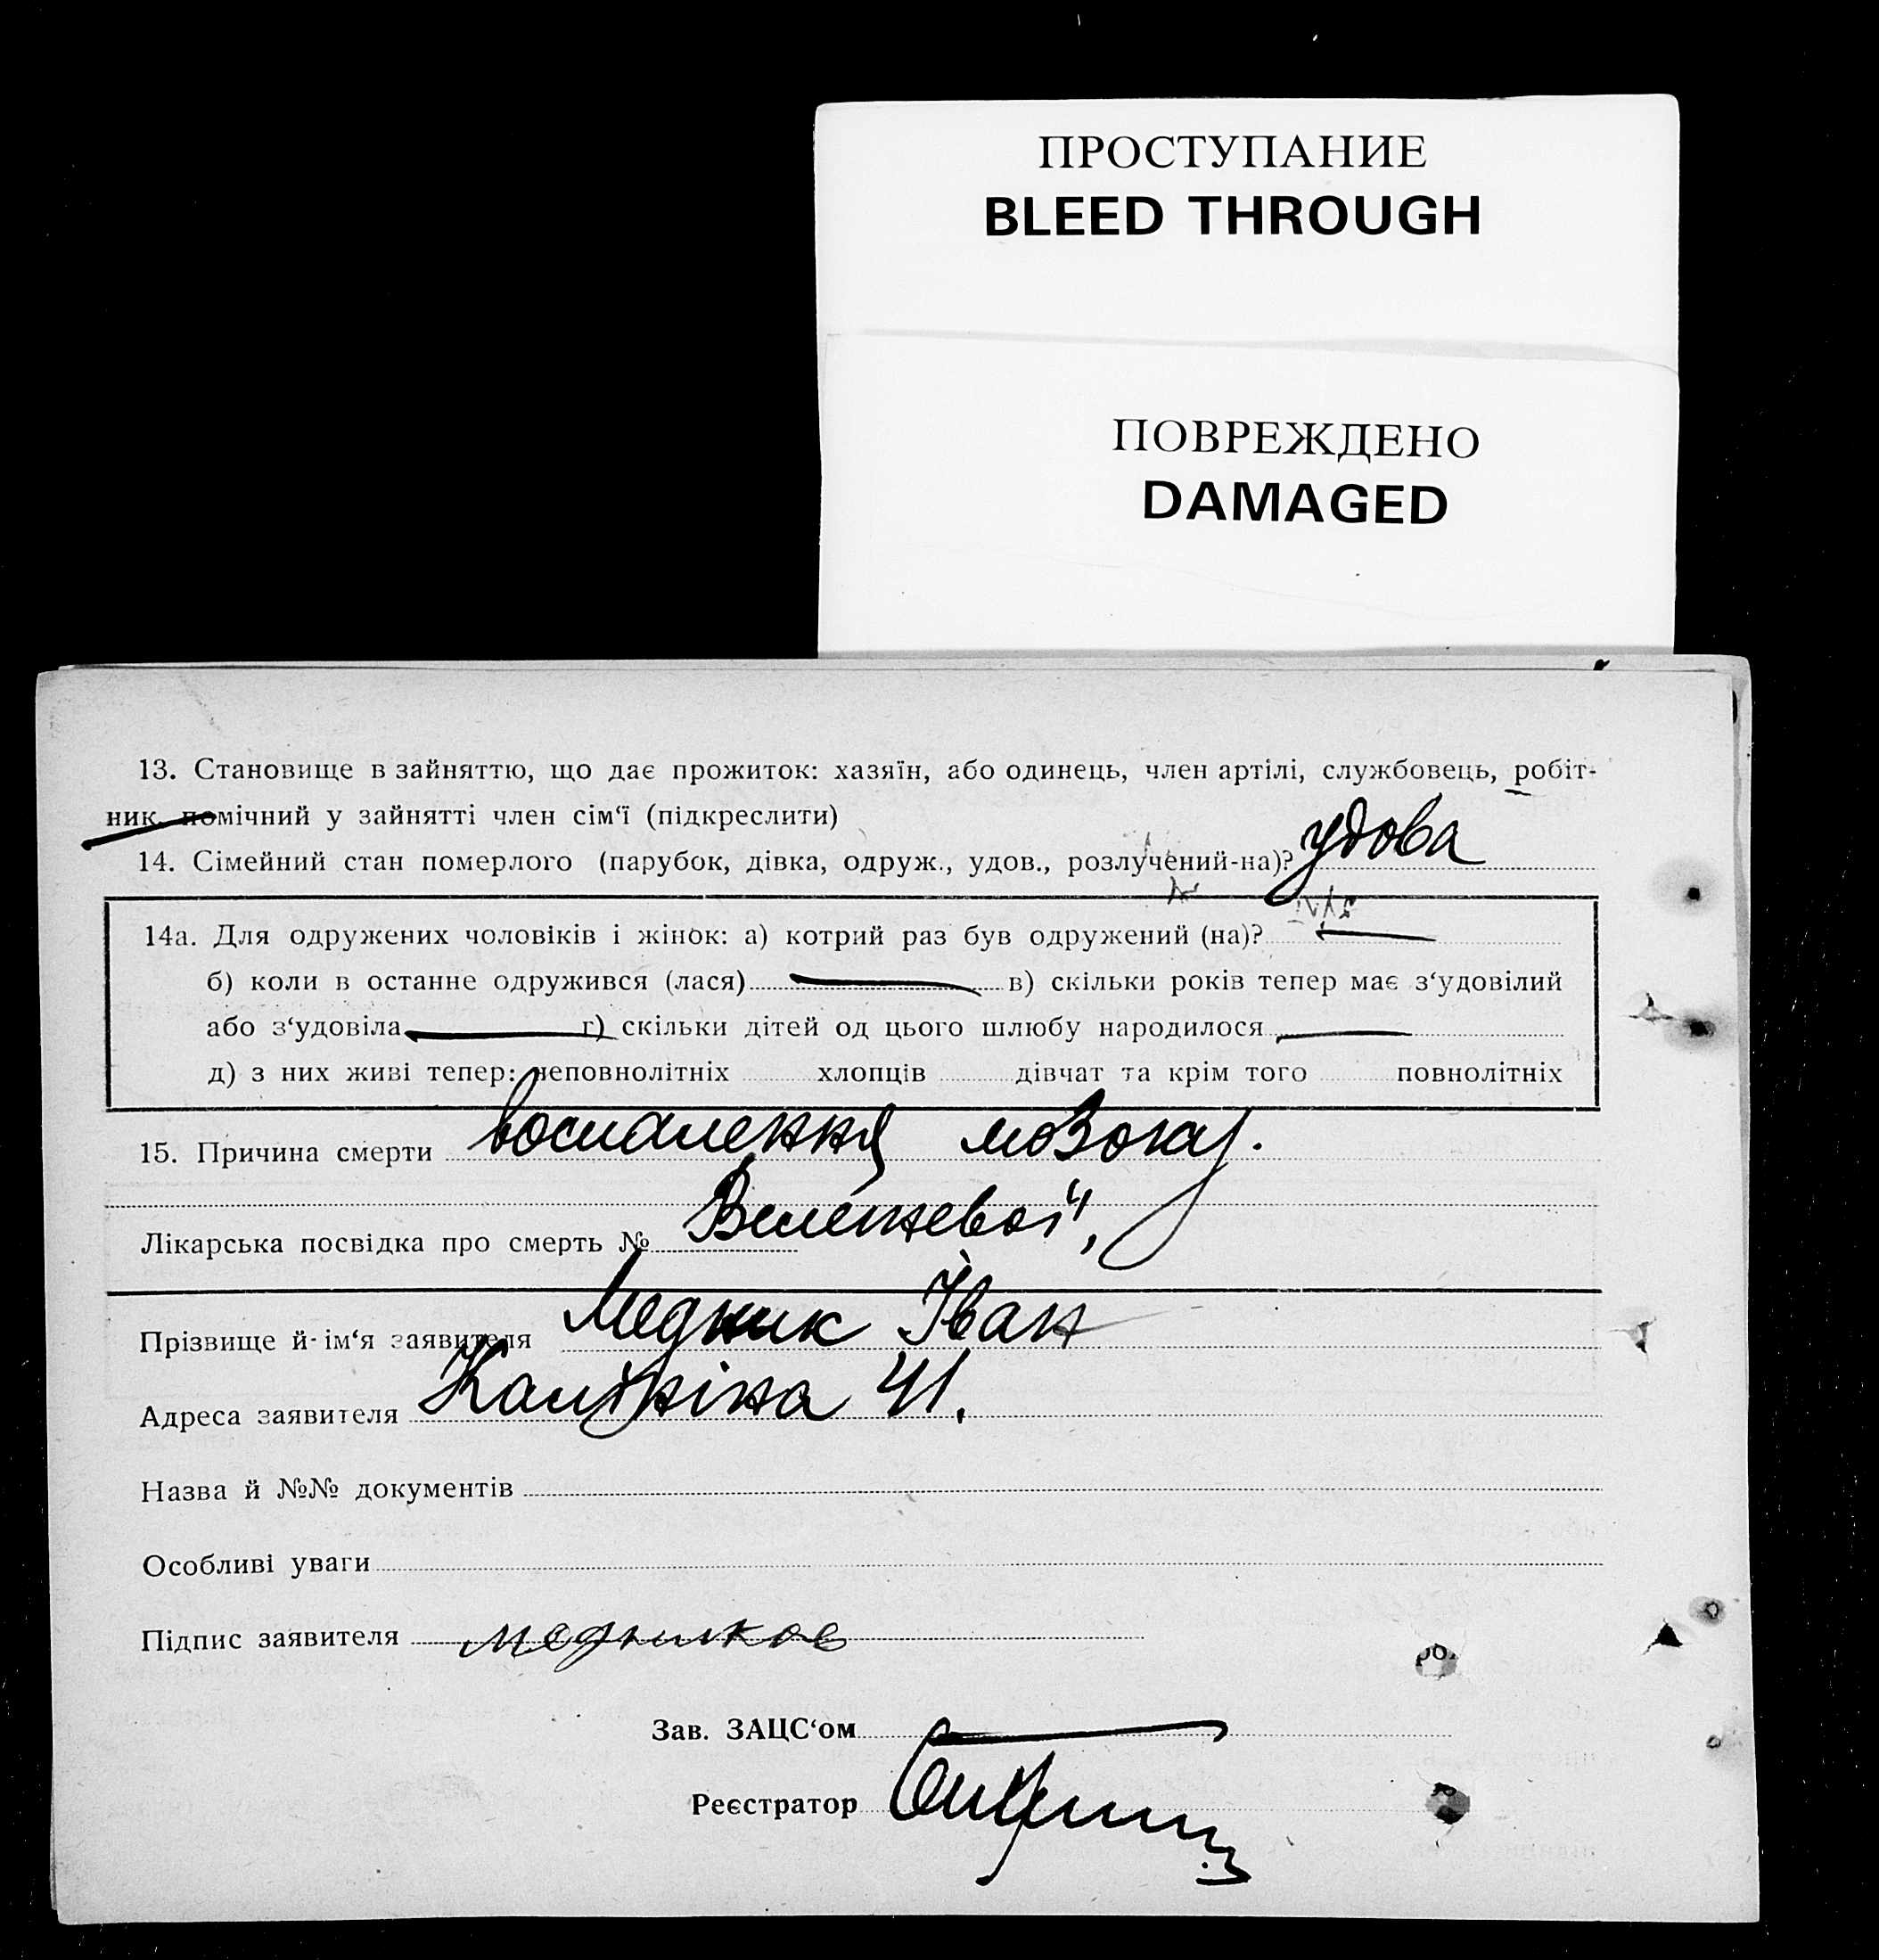 ПРОСТУПАНИЕ
BLEED THROUGH
ПОВРЕЖДЕНО
DAMAGED
13. Становище в зайняттю, що дає прожиток: хазяїн, або одинець, член артілі, службовець, робіт-
ник, помічний у зайнятті член сім‘ї (підкреслити)
14. Сімейний стан померлого (парубок, дівка, одруж., удов., розлучений-на)? удова
14а. Для одружених чоловіків і жінок: а) котрий раз був одружений (на)?
б) коли в останне одружився (лася) в) скільки років тепер має з‘удовілий
або з‘удовіла г) скільки дітей од цього шлюбу народилося
д) з них живі тепер: неповнолітніх хлопців дівчат та крім того повнолітніх
15. Причина смерти воспалення мозоку.
Лікарська посвідка про смерть №
Прізвище й-ім‘я заявителя Медник Іван
Адреса заявителя Калініна 41.
Назва й №№ документів
Особливі уваги
Підпис заявителя медников
Зав. ЗАЦС‘ом
Реєстратор